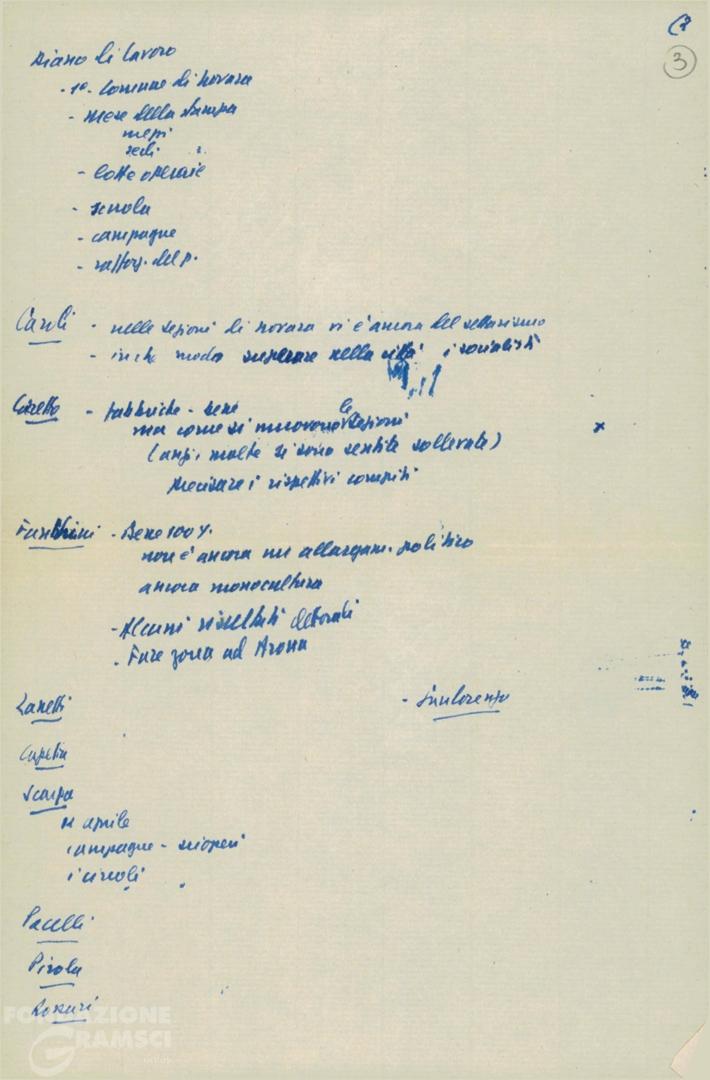 3
Piano di lavoro
- 1º. Comune di Novara
- mese della stampa
mezzi
sedi
- lotte operaie
- scuola
- campagne
- rafforz. del p.
Carli - nelle sezioni di Novara vi è ancora del settarismo
- in che modo superare nella città i socialisti
- fabbriche - bene
ma come si muovono le sezioni
(anzi, molte si sono sentite sollevate)
x
precisare i rispettivi compiti
- Bene 100%.
non è ancora un allargam. politico
ancora monocultura
- Alcuni risultati elettorali
- Fare zona ad Arona
Zanetti
- San Lorenzo
Scarpa
aprile
campagne - scioperi
i circoli
Pacelli
Pirola
FONDAZIONE
GRAMSCI